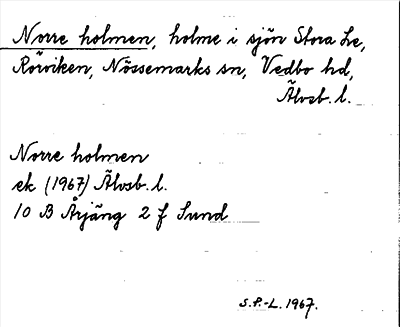 Norre holmen, holme i sjön Stora Le,
Rörviken, Nössemarks sn, Vedbo hd,
Älvsb. l.
Norre holmen
ek (1967) Älvsb. l.
10 B Årjäng 2 f Sund
S.P.-L. 1967.